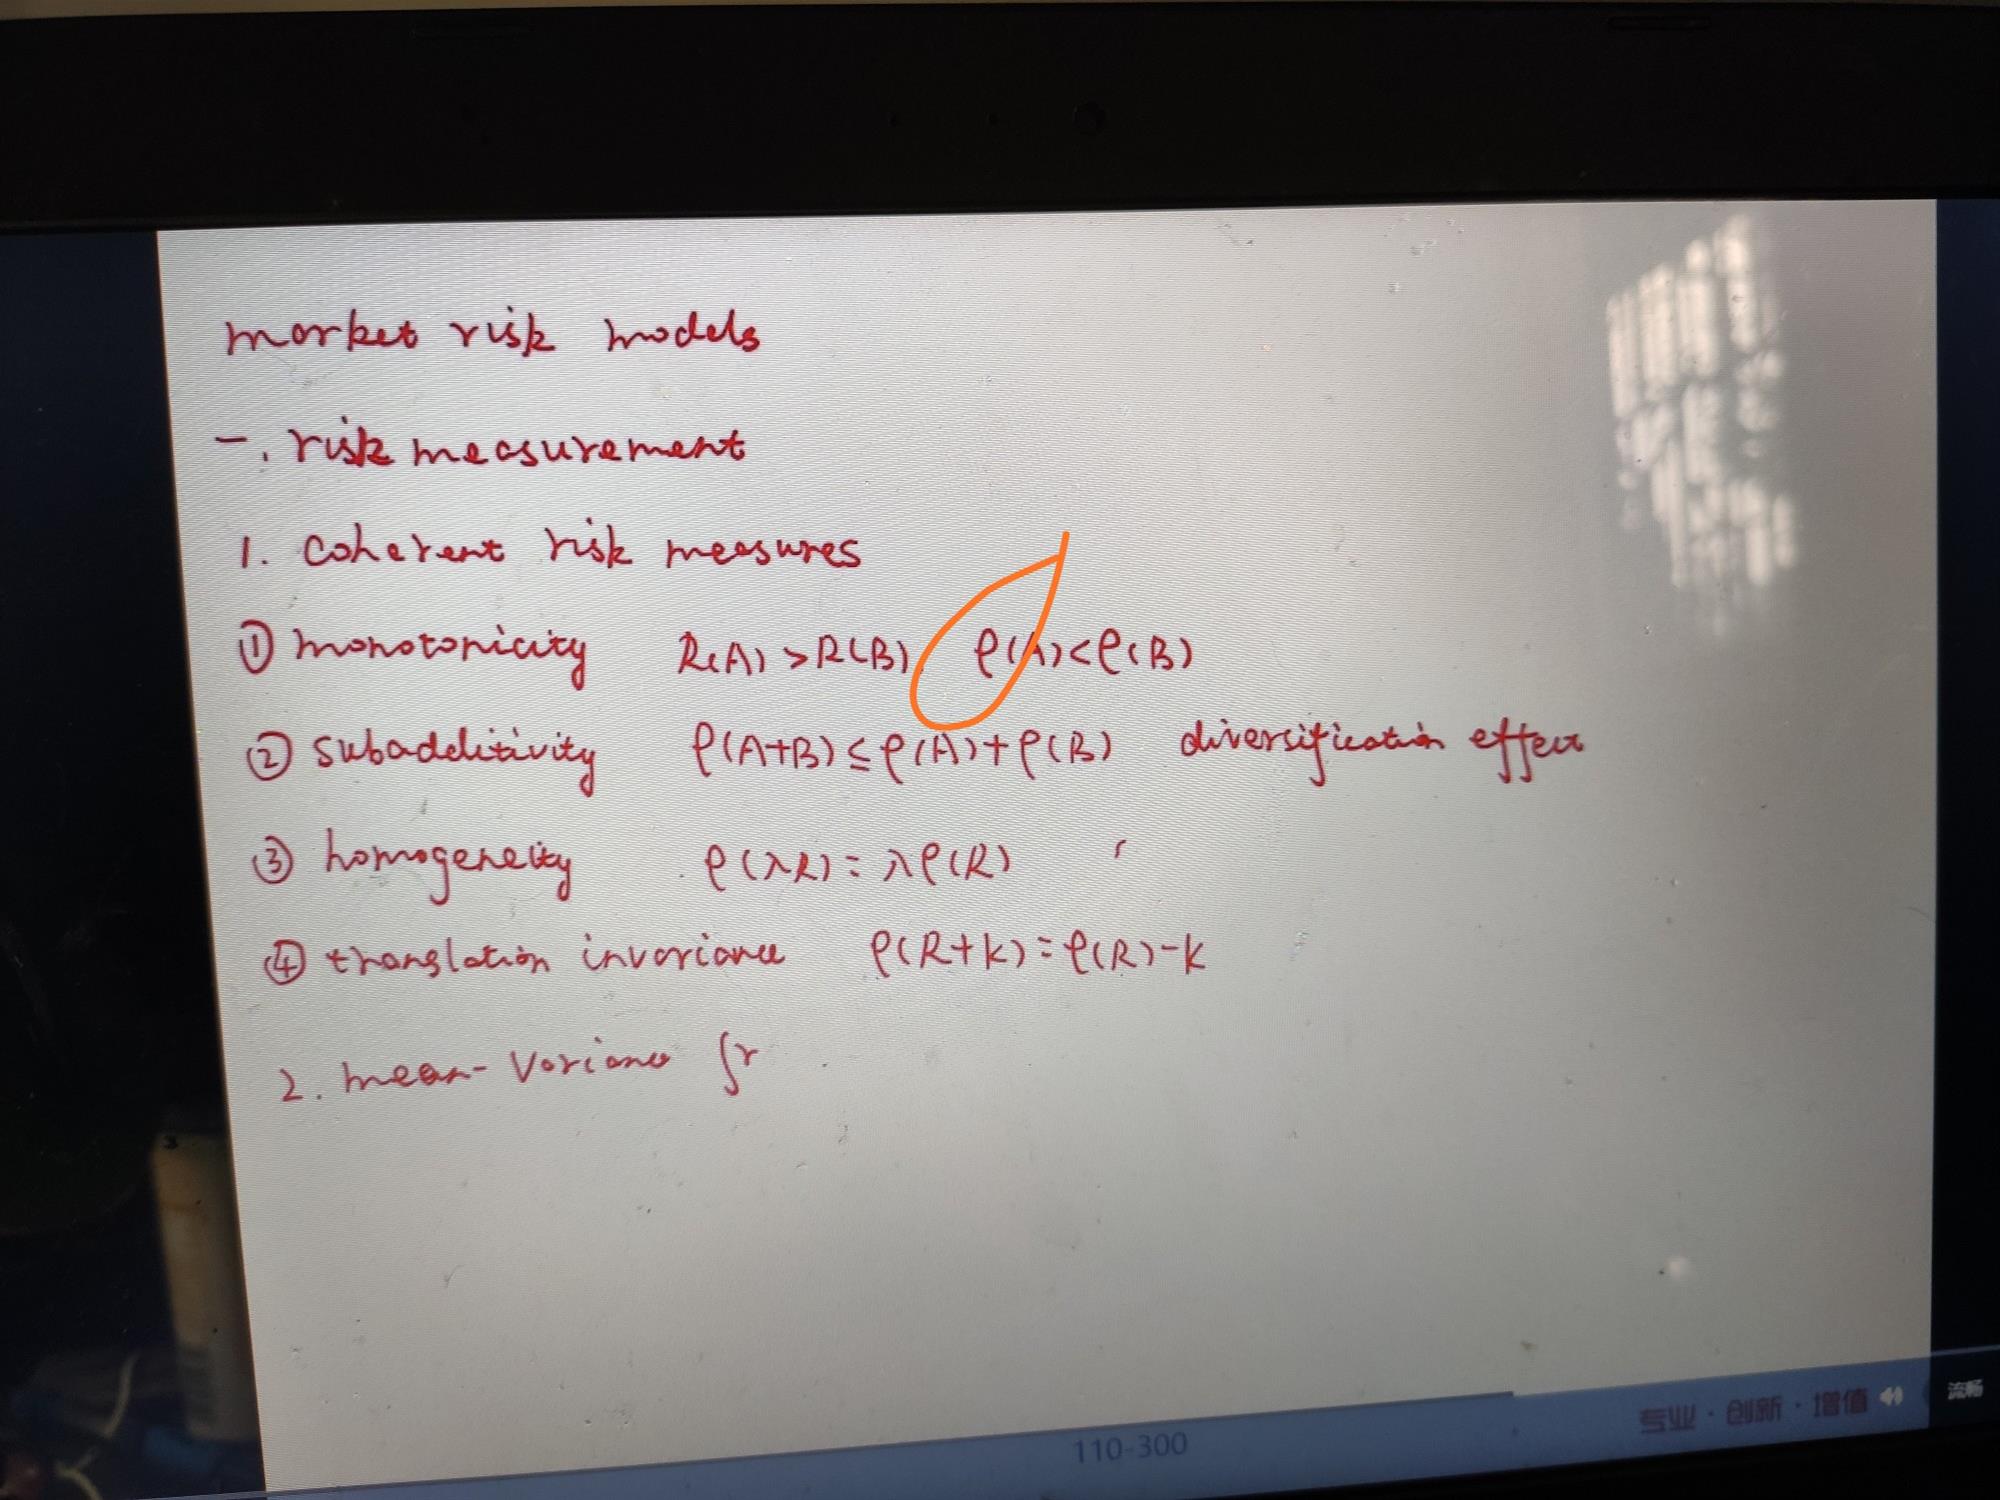 market risk models
一. risk measurement
1. Coherent risk measures
① monotonicity R(A)>R(B) ρ(A)<ρ(B)
② subadditivity ρ(A+B)≤ρ(A)+ρ(B) diversification effect
③ homogeneity ρ(λR)=λρ(R)
④ translation invariance ρ(R+k)=ρ(R)-k
2. mean-Variance fr
专业·创新·增值
流畅
110-300